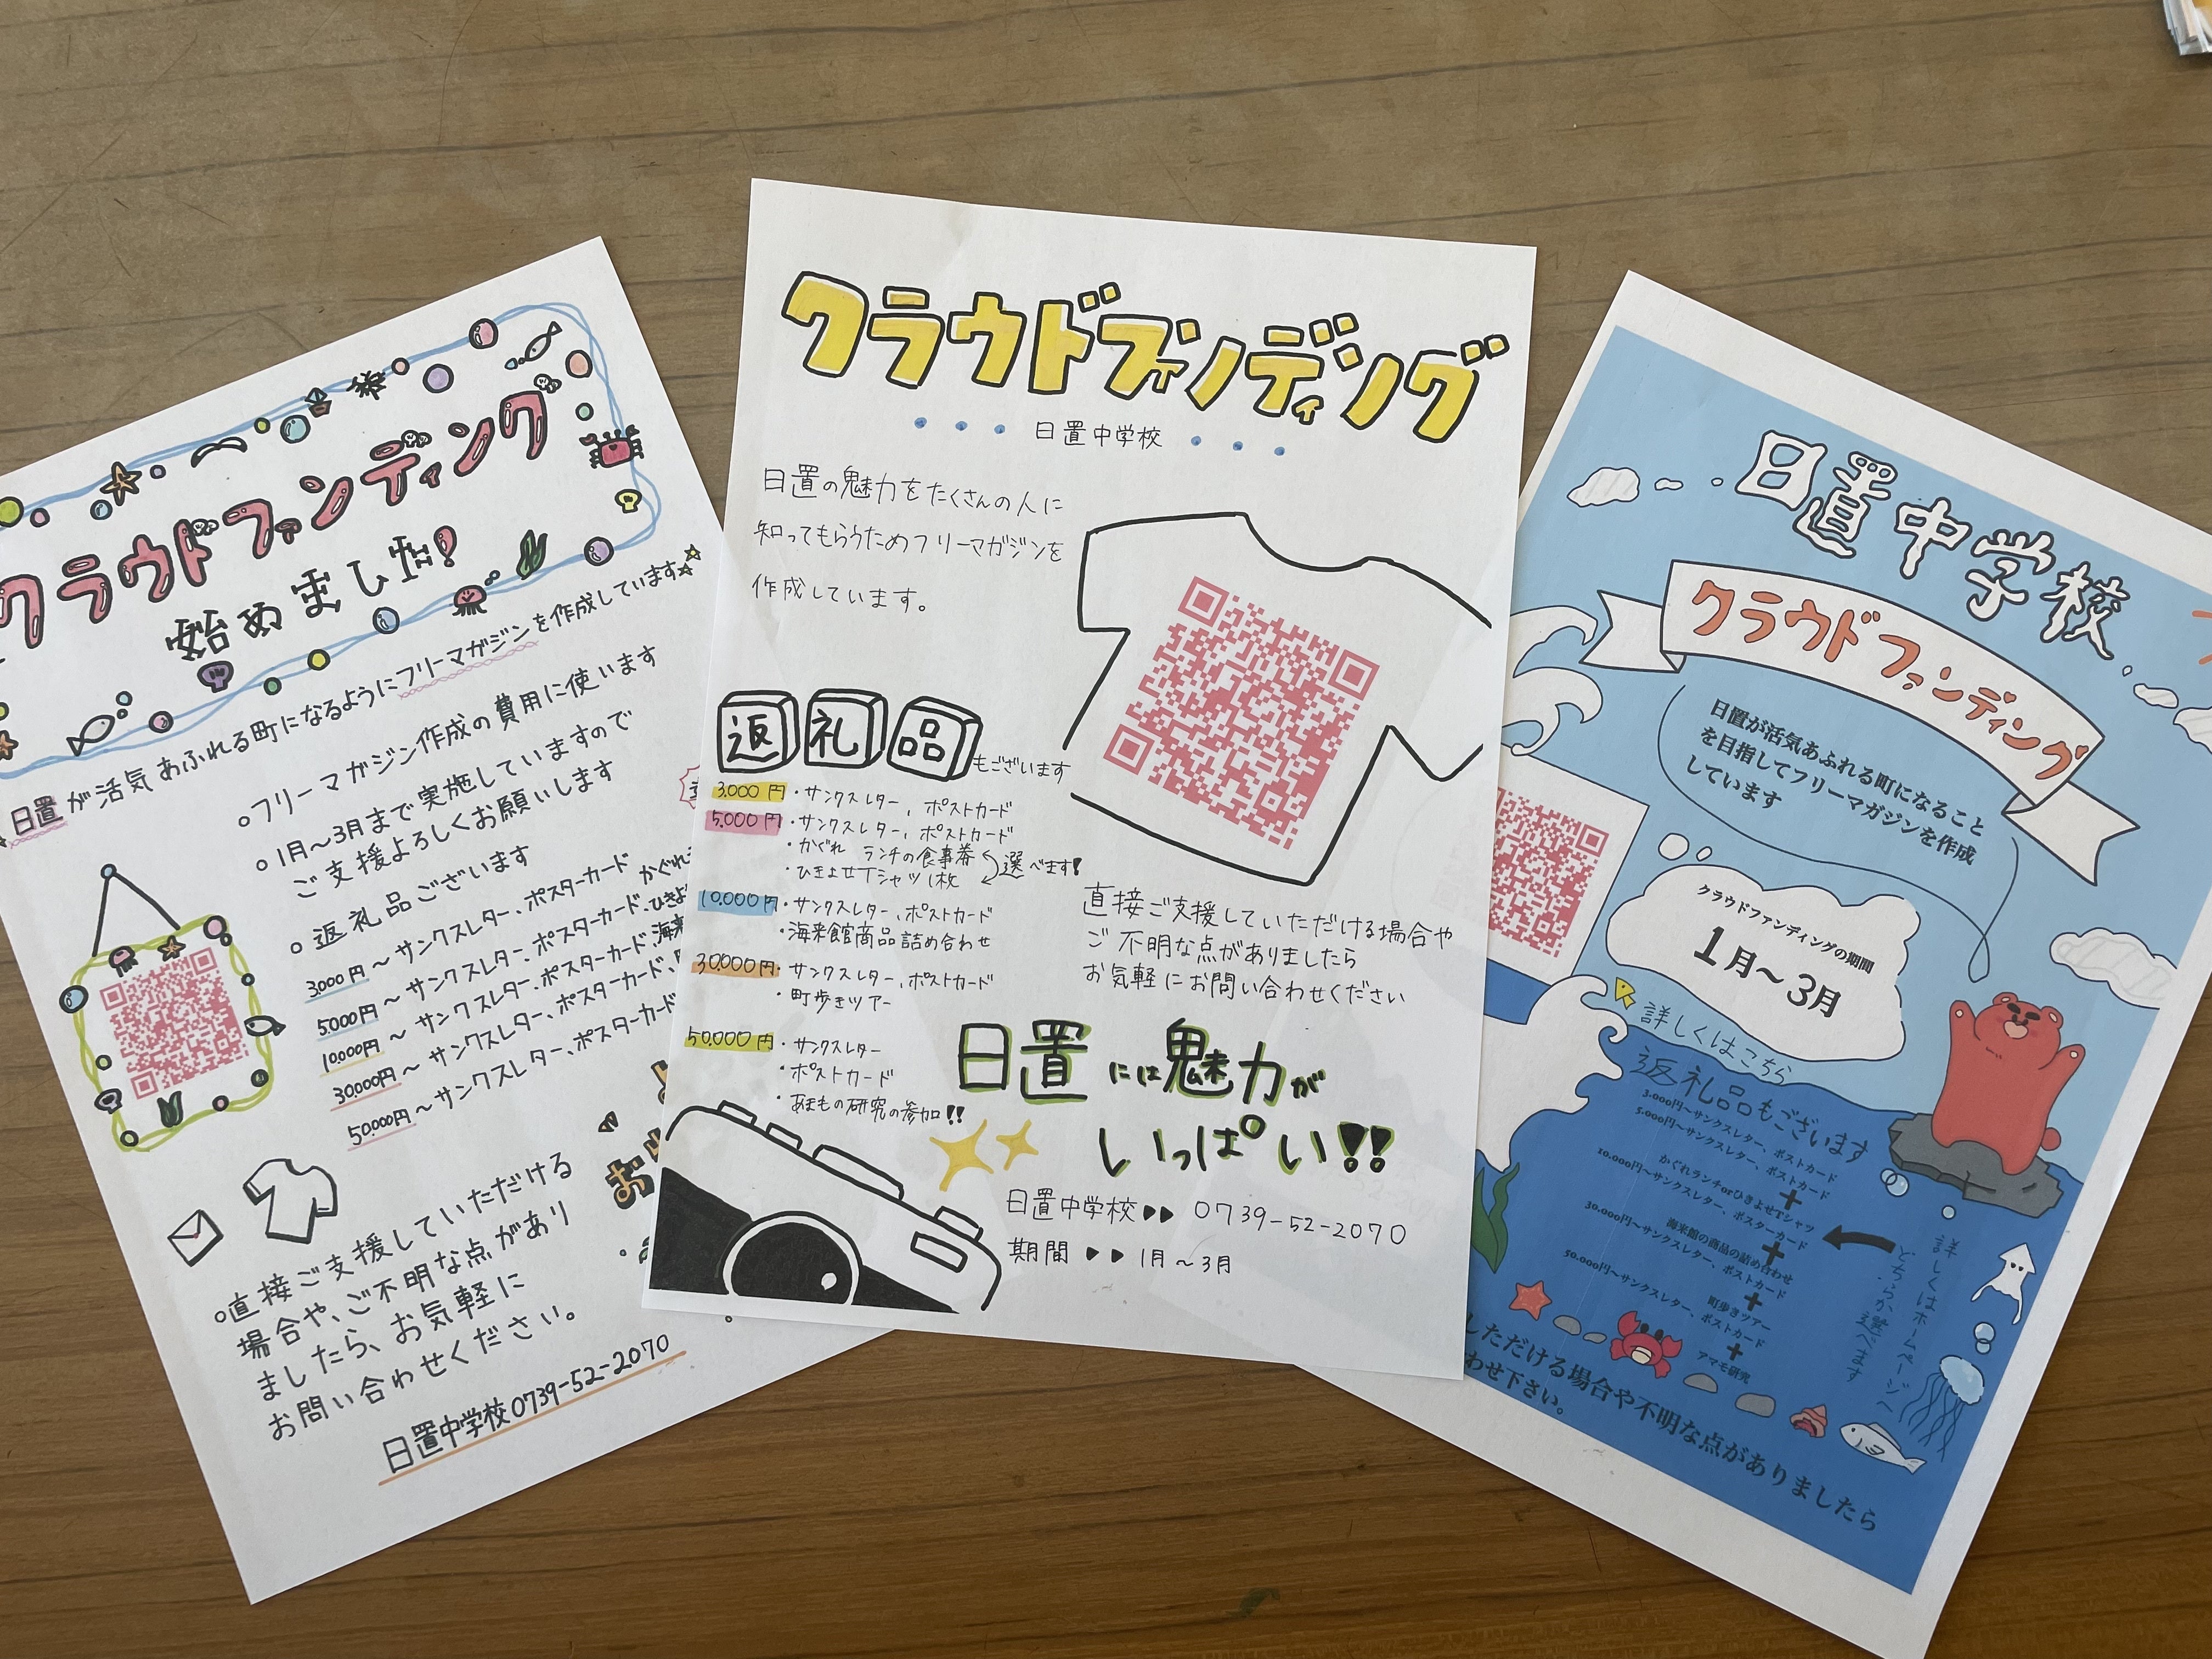 クラウドファンディング
始めました!
日置が活気あふれる町になるようにフリーマガジンを作成しています
○フリーマガジン作成の費用に使います
○1月～3月まで実施していますので
ご支援よろしくお願いします
○返礼品ございます
3,000円～サンクスレター、ポスターカード
5,000円～サンクスレター、ポスターカード、かぐれ
10,000円～サンクスレター、ポスターカード、
30,000円～サンクスレター、ポスターカード、
50,000円～サンクスレター、ポスターカード
○直接ご支援していただける
場合や、ご不明な点があり
ましたら、お気軽に
お問い合わせください。
日置中学校0739-52-2070
クラウドファンディング
日置中学校
日置の魅力をたくさんの人に
知ってもらうためフリーマガジンを
作成しています。
返礼品もございます
3,000円・サンクスレター、ポストカード
5,000円・サンクスレター、ポストカード
・かぐれ ランチの食事券
・ひきよせTシャツ1枚
選べます!
10,000円・サンクスレター、ポストカード
・海来館商品詰め合わせ
30,000円・サンクスレター、ポストカード
・町歩きツアー
50,000円・サンクスレター
・ポストカード
・あまもの研究の参加!!
直接ご支援していただける場合や
ご不明な点がありましたら
お気軽にお問い合わせください
日置には魅力が
いっぱい!!
日置中学校▶▶0739-52-2070
期間▶▶1月～3月
日置中学校
クラウドファンディング
日置が活気あふれる町になること
を目指してフリーマガジンを作成
しています
クラウドファンディングの期間
1月～3月
詳しくはこちら
返礼品もございます
3,000円～サンクスレター、ポストカード
5,000円～サンクスレター、ポストカード
+
かぐれランチorひきよせTシャツ
10,000円～サンクスレター、ポスターカード
+
海来館の商品の詰め合わせ
30,000円～サンクスレター、ポストカード
+
町歩きツアー
50,000円～サンクスレター、ポストカード
+
アマモ研究
詳しくはホームページへ
どちらか選べます
しただける場合や不明な点がありましたら
わせ下さい。